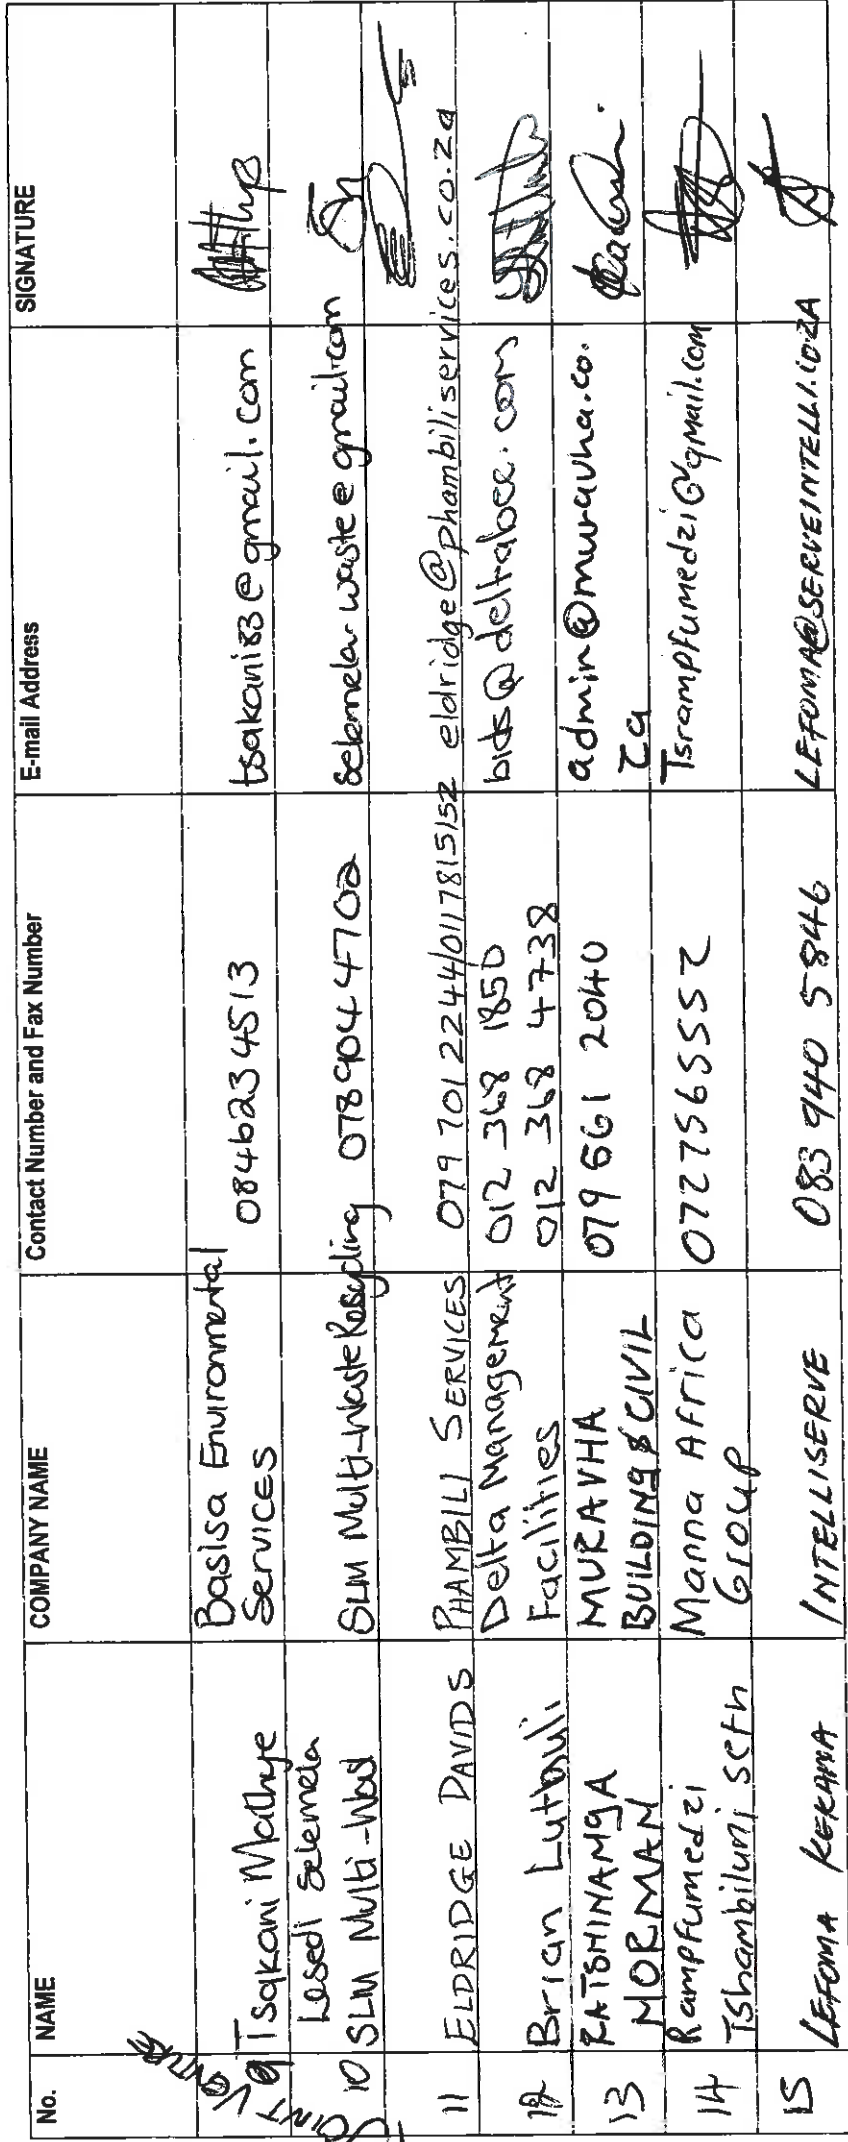 No. NAME COMPANY NAME Contact Number and Fax Number E-mail Address SIGNATURE
JOINT VENTURE
9 Tsakani Mathye Basisa Environmental Services 0846234513 tsakani83@gmail.com
10 Lesedi Selemela SLM Multi-Wast SLM Multi-Waste Recycling 0789044702 selemela.waste@gmail.com
11 ELDRIDGE DAVIDS PHAMBILI SERVICES 079 701 2244/0117815152 eldridge@phambiliservices.co.za
12 Brian Luthuli Delta Management Facilities 012 368 1850
012 368 4738 bids@deltabee.com
13 RATSHINANGA NORMAN MURAVHA BUILDING & CIVIL 079 561 2040 admin@muravha.co.
za
14 Rampfumedzi Tshambiluni Seth Manna Africa Group 0727565552 Tsrampfumedzi@gmail.com
15 LEFOMA KEKANA INTELLISERVE 083 940 5846 LEFOMA@SERVEINTELLI.CO.ZA